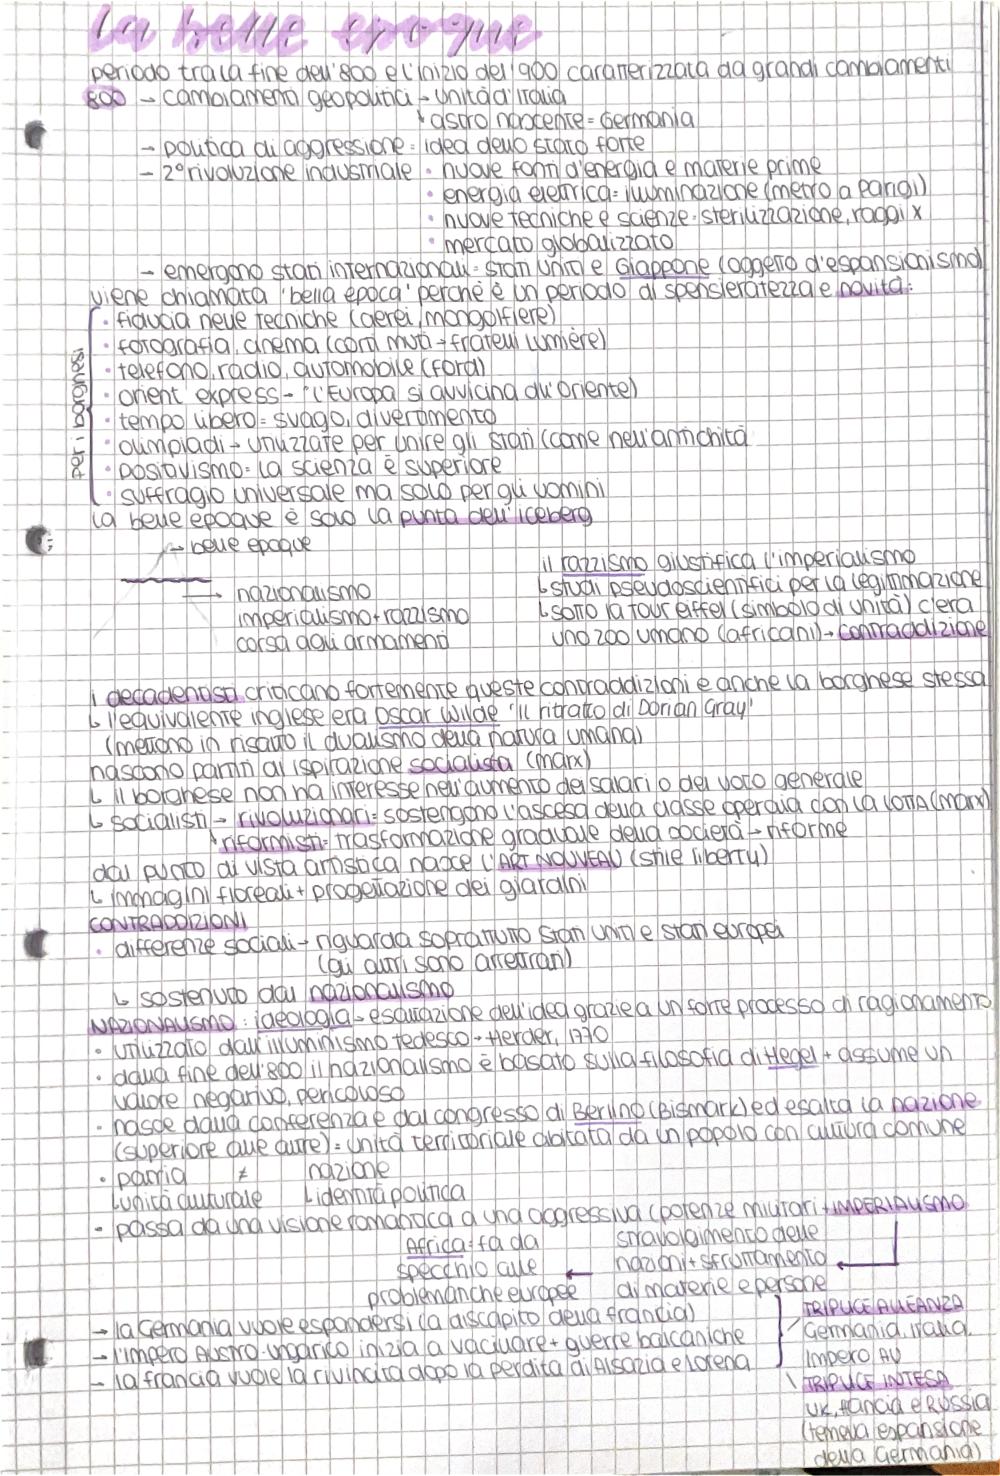 la belle epoque
periodo tra la fine dell'800 e l'inizio del '900 caratterizzata da grandi cambiamenti
800 → cambiamenti geopolitici → unità d'Italia
↳ astro nascente = Germania
→ politica di aggressione = idea dello stato forte
→ 2° rivoluzione industriale • nuove fonti d'energia e materie prime
• energia elettrica = illuminazione (metro a Parigi)
• nuove tecniche e scienze = sterilizzazione, raggi x
• mercato globalizzato
→ emergono stati internazionali = Stati Uniti e Giappone (oggetto d'espansionismo)
viene chiamata 'bella epoca' perchè è un periodo di spensieratezza e novità:
per i borghesi
• fiducia nelle tecniche (aerei, mongolfiere)
• fotografia, cinema (corti muti → fratelli lumière)
• telefono, radio, automobile (ford)
• orient express → "l'Europa si avvicina all'oriente)
• tempo libero = svago, divertimento
• olimpiadi → utilizzate per unire gli stati (come nell'antichità
• positivismo = la scienza è superiore
• suffragio universale ma solo per gli uomini
la belle epoque è solo la punta dell'iceberg
→ belle epoque
→ nazionalismo
imperialismo + razzismo
corsa agli armamenti
il razzismo giustifica l'imperialismo
↳ studi pseudoscientifici per la legittimazione
↳ sotto la tour eiffel (simbolo di unità) c'era
uno zoo umano (africani) → contraddizione
i decadentisti criticano fortemente queste contraddizioni e anche la borghese stessa
↳ l'equivalente inglese era Oscar Wilde 'Il ritratto di Dorian Gray'
(mettono in risalto il dualismo della natura umana)
nascono partiti di ispirazione socialista (marx)
↳ il borghese non ha interesse nell'aumento dei salari o del voto generale
↳ socialisti → rivoluzionari = sostengono l'ascesa della classe operaia con la lotta (marx)
↳ riformisti = trasformazione graduale della società → riforme
dal punto di vista artistico nasce l'ART NOUVEAU (stile liberty)
↳ immagini floreali + progettazione dei giardini
CONTRADDIZIONI
• differenze sociali → riguarda soprattutto Stati Uniti e stati europei
(gli altri sono arretrati)
↳ sostenuto dal nazionalismo
NAZIONALISMO: ideologia → esaltazione dell'idea grazie a un forte processo di ragionamento
• utilizzato dall'illuminismo tedesco → Herder, 1770
• dalla fine dell'800 il nazionalismo è basato sulla filosofia di Hegel + assume un
valore negativo, pericoloso
• nasce dalla conferenza e dal congresso di Berlino (Bismark) ed esalta la nazione
(superiore alle altre) = unità territoriale abitata da un popolo con cultura comune
• patria ≠ nazione
↳ unità culturale ↳ identità politica
• passa da una visione romantica a una aggressiva (potenze militari → IMPERIALISMO
stravolgimento delle
nazioni + sfruttamento
di materie e persone
Africa = fa da
specchio alle
problematiche europee
→ la Germania vuole espandersi (a discapito della francia)
→ l'impero Austro-ungarico inizia a vacillare + guerre balcaniche
→ la francia vuole la rivincita dopo la perdita di Alsazia e Lorena
TRIPLICE ALLEANZA
Germania, Italia,
Impero AU
TRIPLICE INTESA
UK, francia e RUSSIA
(temeva espansione
della Germania)